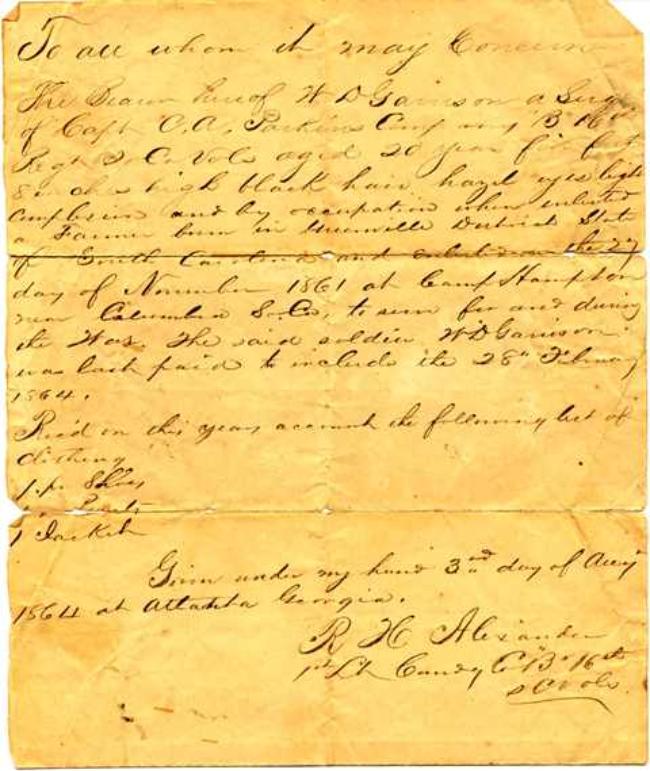 To all whom it may Concern
The Bearer hereof W D Garrison a Serg
of Capt C. A. Parkins Company "B" 16th
Regt So Ca Vols aged 20 year five feet
8 inches high black hair hazel eyes light
complexion and by occupation when enlisted
a Farmer born in Greenville District State
of South Carolina and enlisted on the 27
day of November 1861 at Camp Hampton
near Columbia So. Ca, to serve for and during
the War. The said soldier W D Garrison
was last paid to include the 28th February
1864.
Rec'd on this years account the following list of
clothing
1 pr Shoes
" Pants
1 Jacket
Given under my hand 3rd day of Augt
1864 at Atlanta Georgia.
R H Alexander
1st Lt Comdg Co "B" 16th
S C Vols.